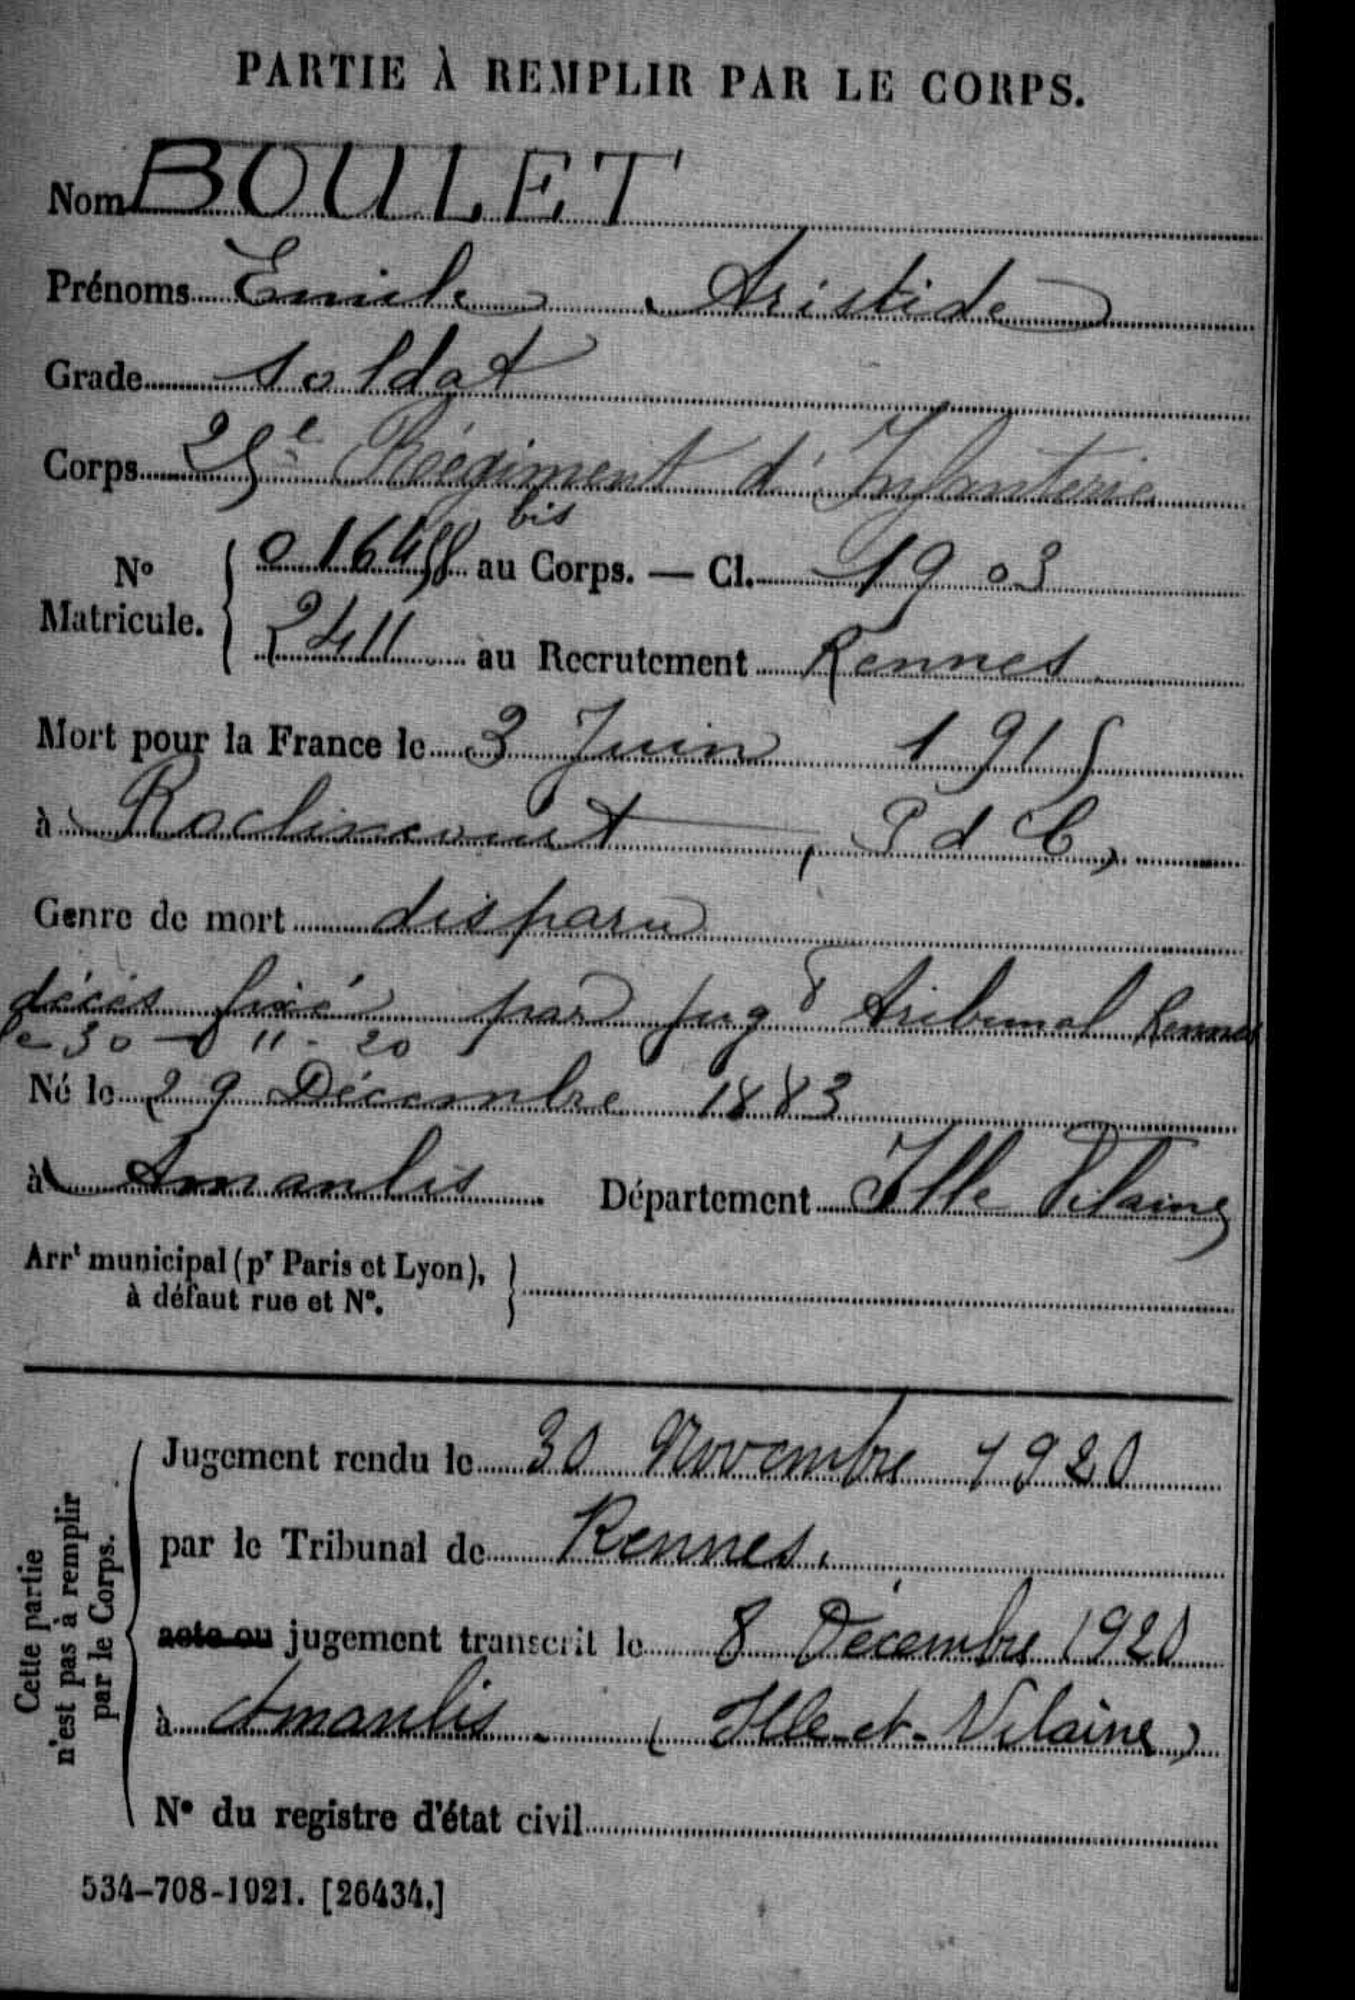 PARTIE À REMPLIR PAR LE CORPS.
Nom BOULET
Prénoms Emile Aristide
Grade soldat
Corps 25e Régiment d'Infanterie
bis
N° Matricule. { 016458 au Corps. — Cl. 1903
2411 au Recrutement Rennes
Mort pour la France le 3 Juin 1915
à Roclincourt, P d C,
Genre de mort disparu
décés fixé par jug t tribunal Rennes
le 30 - 11 - 20
Né le 29 Décembre 1883
à Amanlis Département Ille Vilaine
Arrt municipal (pr Paris et Lyon), }
à défaut rue et N°.
Cette partie
n'est pas à remplir
par le Corps.
Jugement rendu le 30 Novembre 1920
par le Tribunal de Rennes.
acte ou jugement transcrit le 8 Décembre 1920
à Amanlis. (Ille-et-Vilaine)
N° du registre d'état civil
534-708-1921. [26434.]